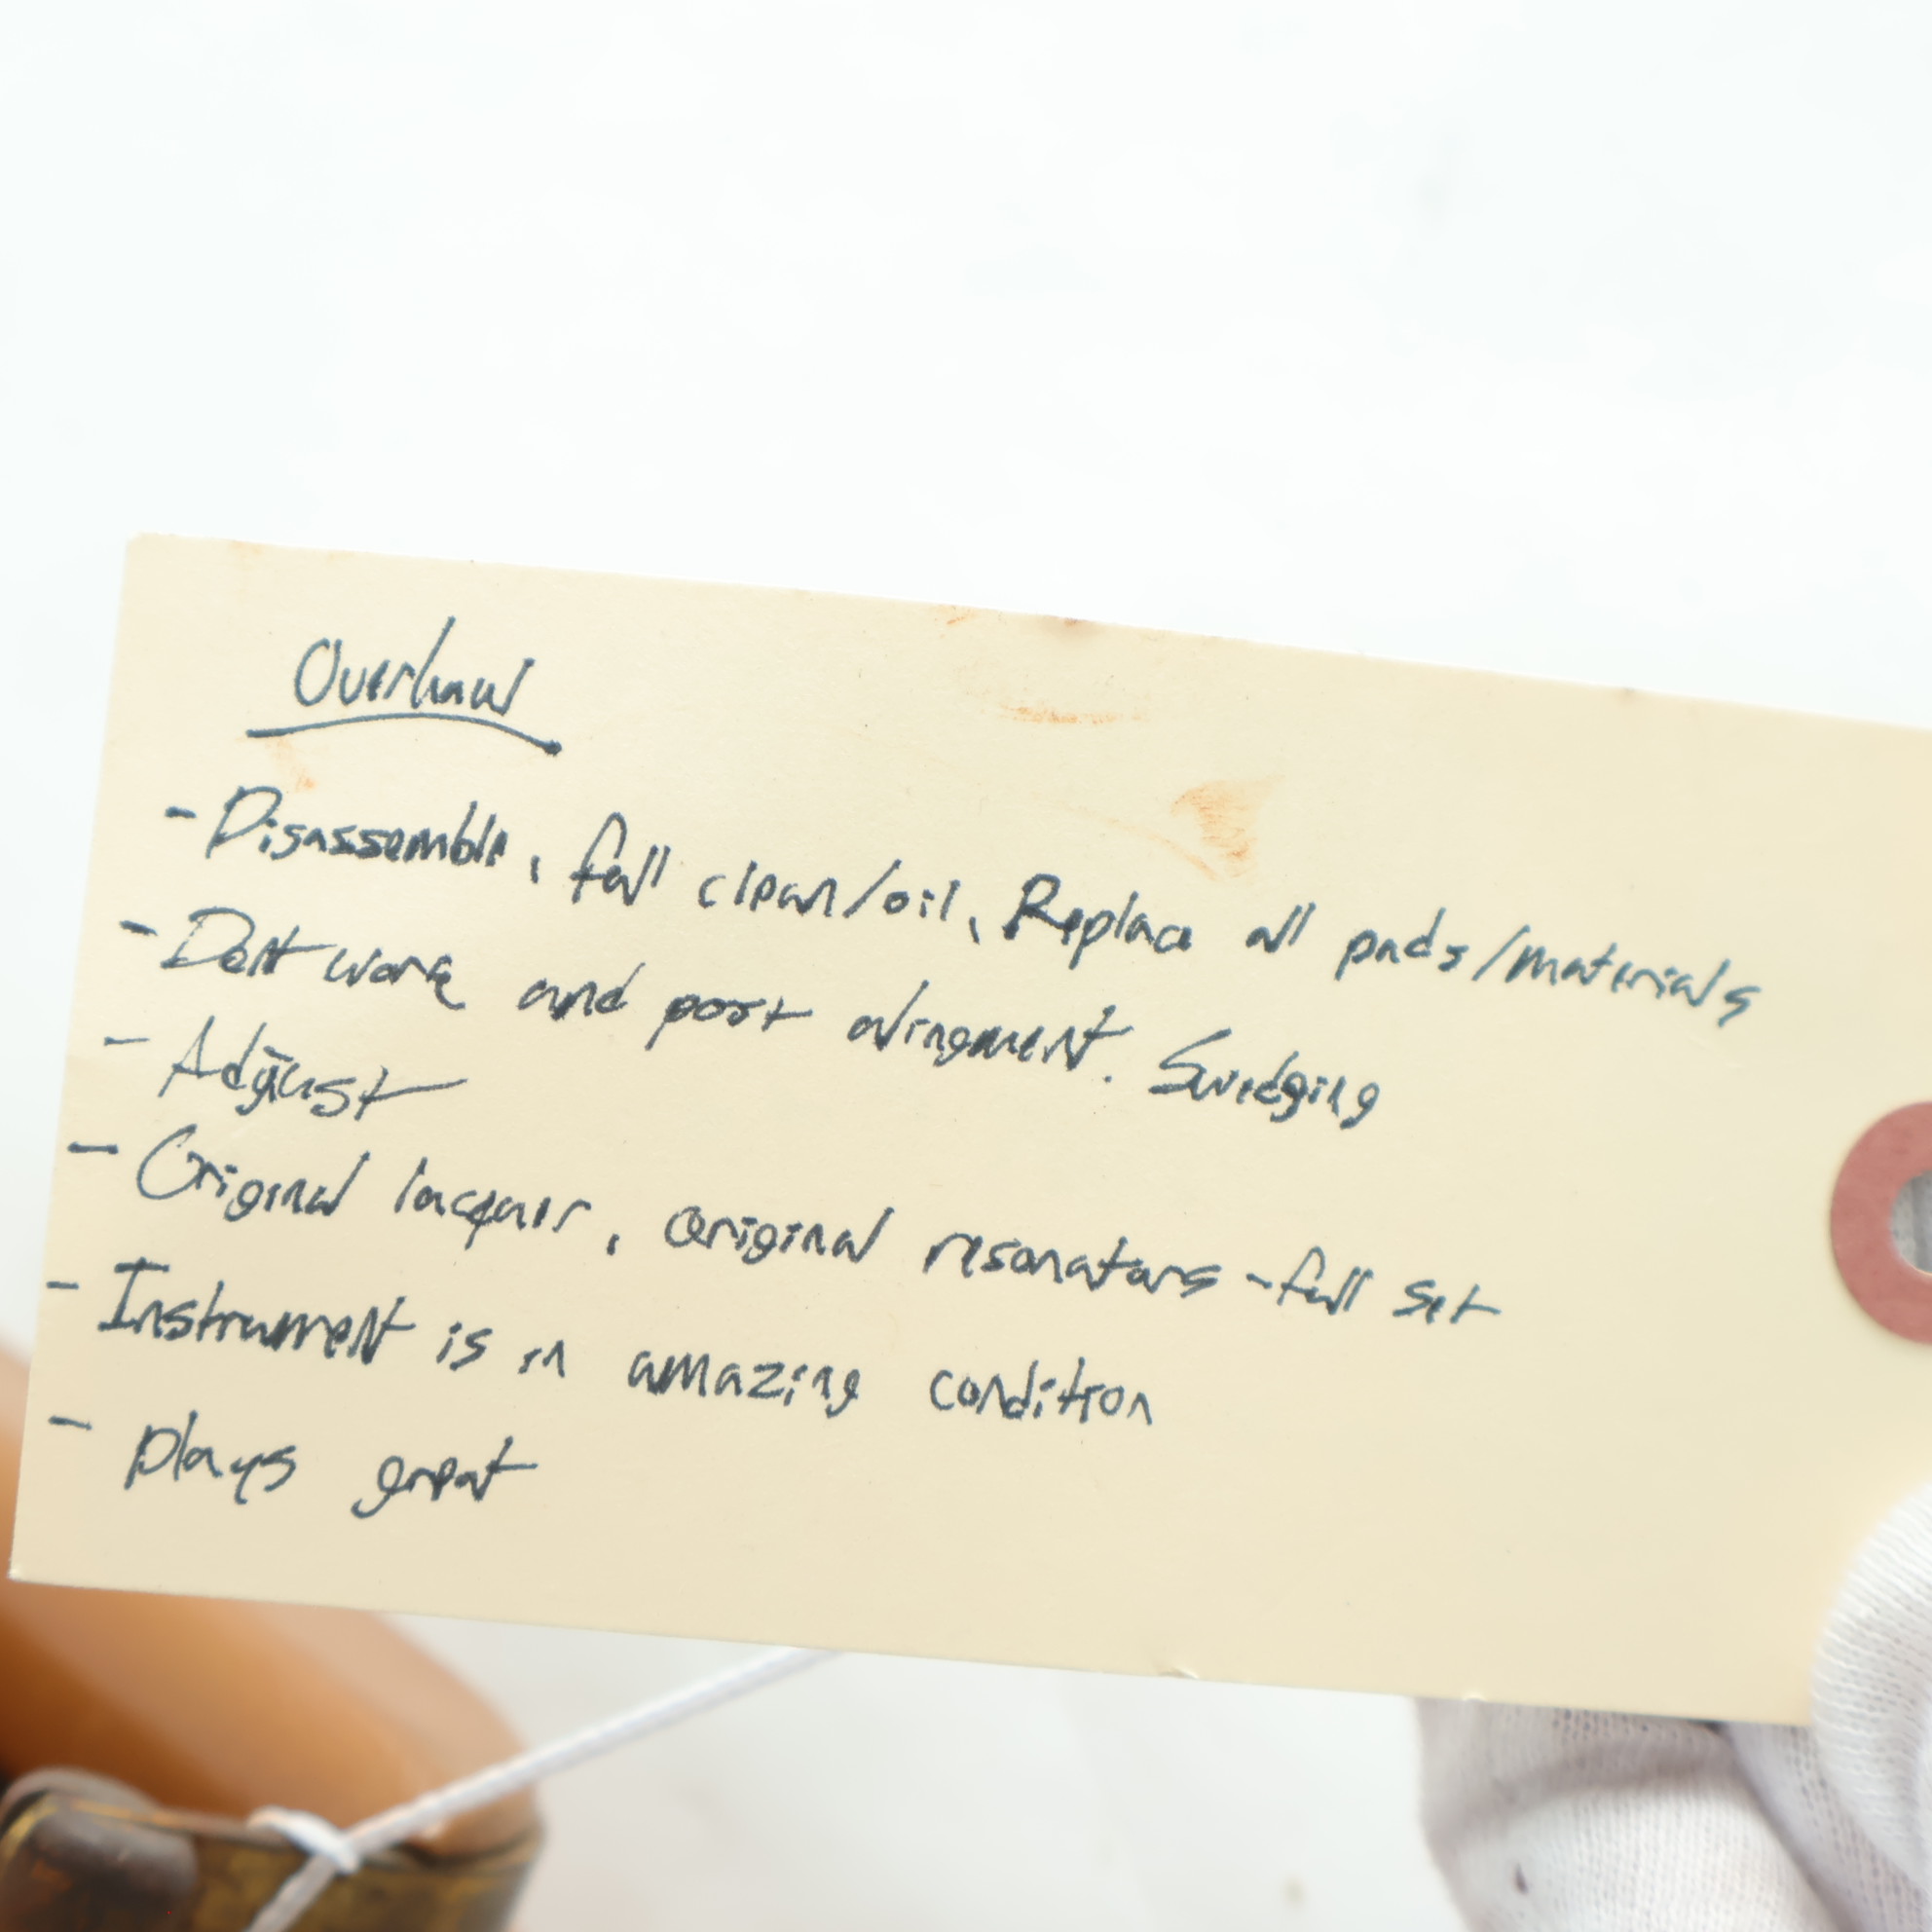 Overhaul
- Disassemble, full clean/oil, Replace all pads/materials
- Dent work and post alingment. Swedging
- Adjust
- Original lacquer, original resonators - full set
- Instrument is in amazing condition
- plays great